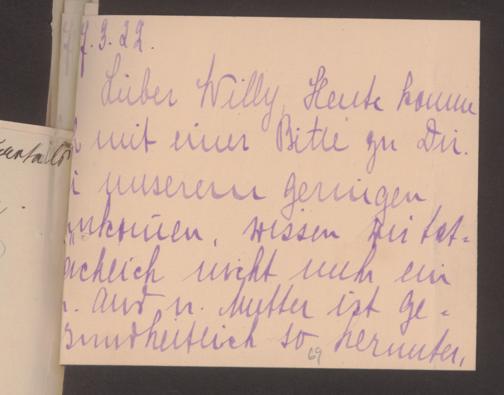 7.3.22.
Lieber Willy, Heute komme
mit einer Bitte zu Dir.
unserem geringen
nkommen, wissen wir tat=
ächlich nicht mehr ein
aus u. Mutter ist ge=
sundheitlich so herunter,
69